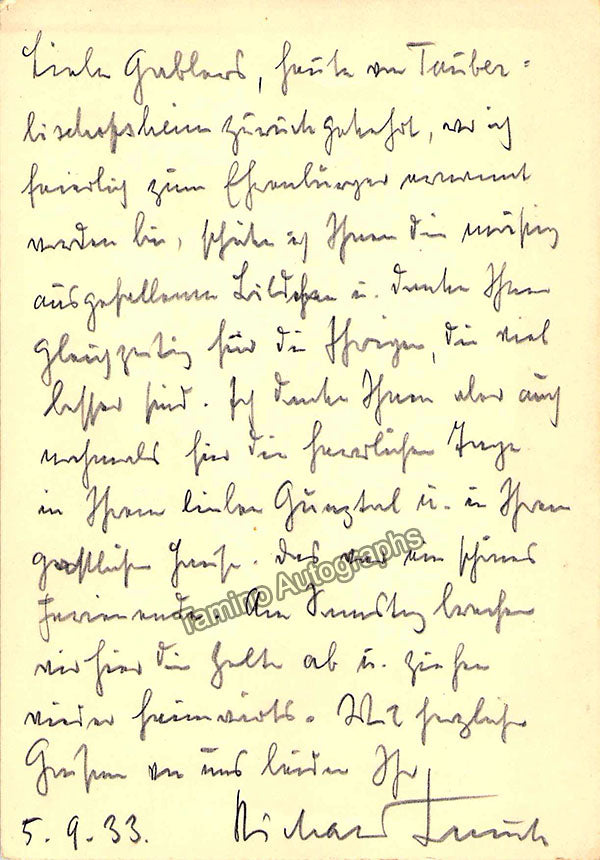 Liebe Gablers, heute von Tauber=
bischofsheim zurückgekehrt, wo ich
feierlich zum Ehrenbürger ernannt
worden bin, schicke ich Ihnen die mässig
ausgefallenen Bildchen u. danke Ihnen
gleichzeitig für die Ihrigen, die viel
besser sind. Ich danke Ihnen aber auch
nochmals für die herrlichen Tage
in Ihrem lieben Günztal u. in Ihrem
gastlichen Hause. Das war ein schönes
Ferienende. Am Samstag brechen
wir hier die Zelte ab u. ziehen
wieder heimwärts. Mit herzlichen
Grüßen von uns beiden Ihr
5.9.33. Richard Trunk
Tamino Autographs